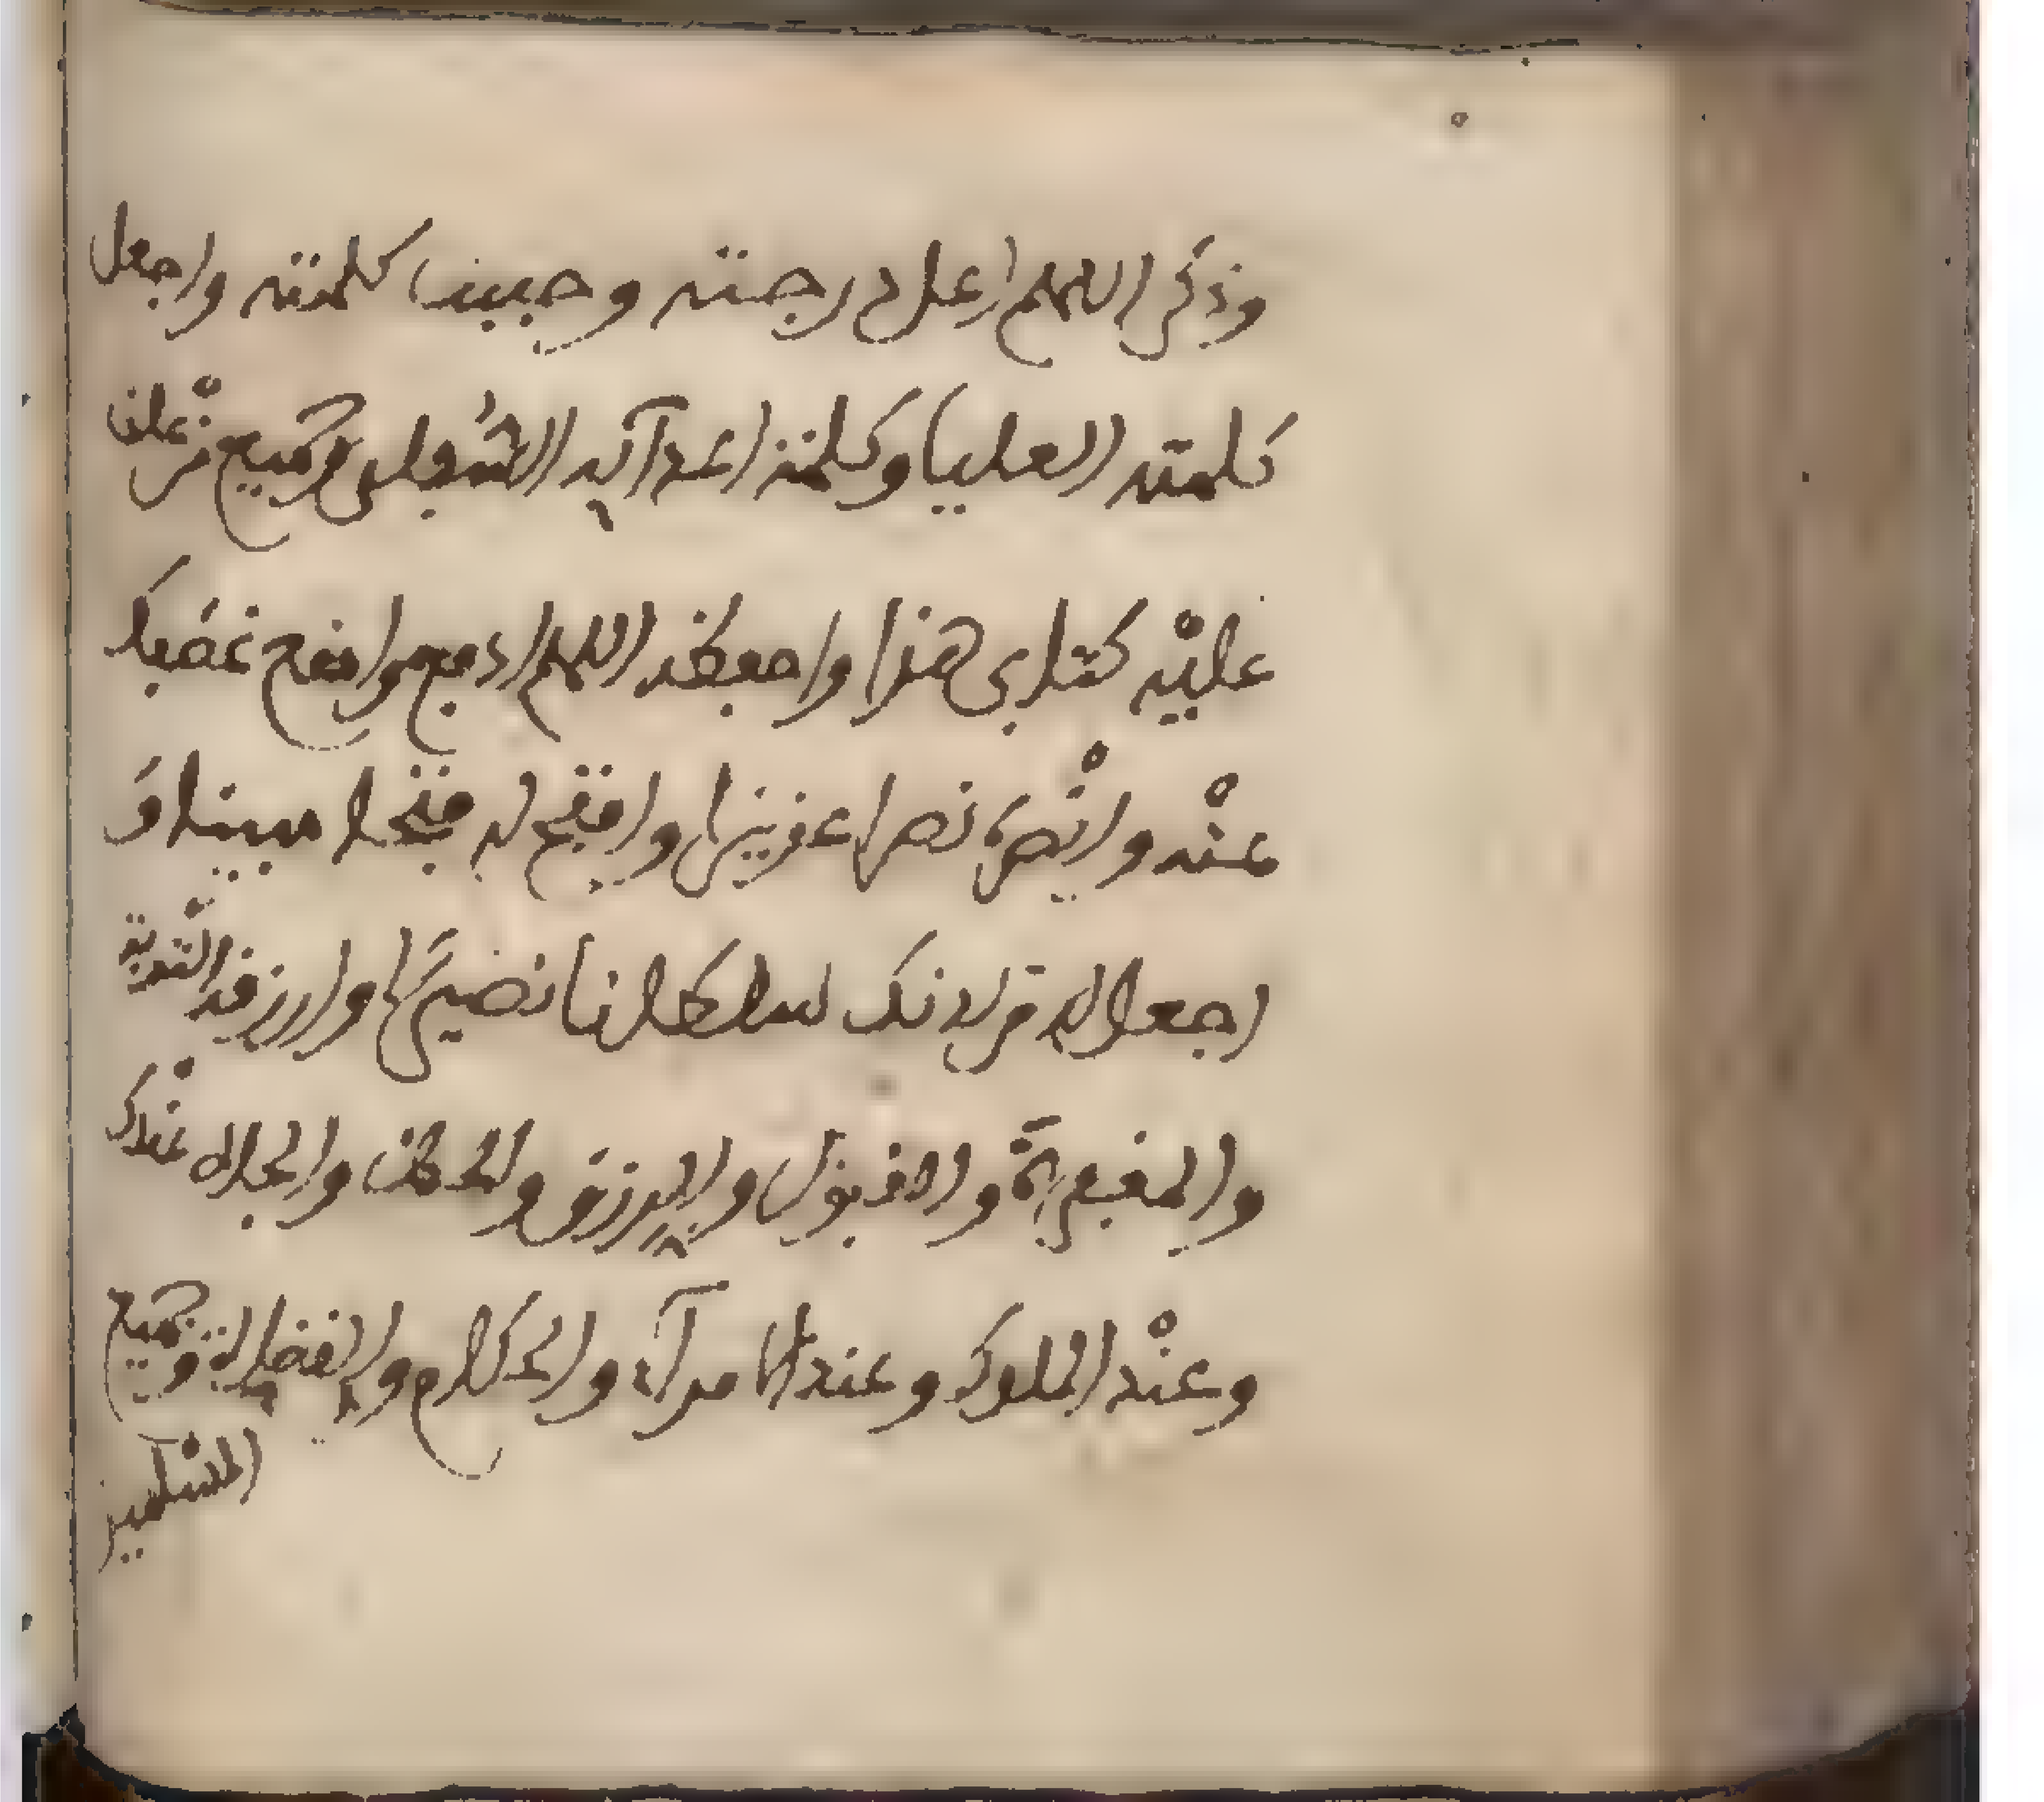 وذكر اللهم ارعل درجته وحبيب كلمته واجعل
كلمته العليا وكلمة اعدآيه السّفلى وجميع من علق
عليْه كتابي هذا واحفظه اللهم ادفع وارفع غضبك
عنْه وانْصره نصرا عزيزا وافتح له فتحا مبينا وَ
اجعل له من لدنك سلطانا نصيرًا وارزقه التّوبة
والمغفرة والقبول والرزق والحفظ والجلاله عنْدك
وعنْد الملوك وعند الامرآء والحكام والفضالة وجميع
المسْلمين